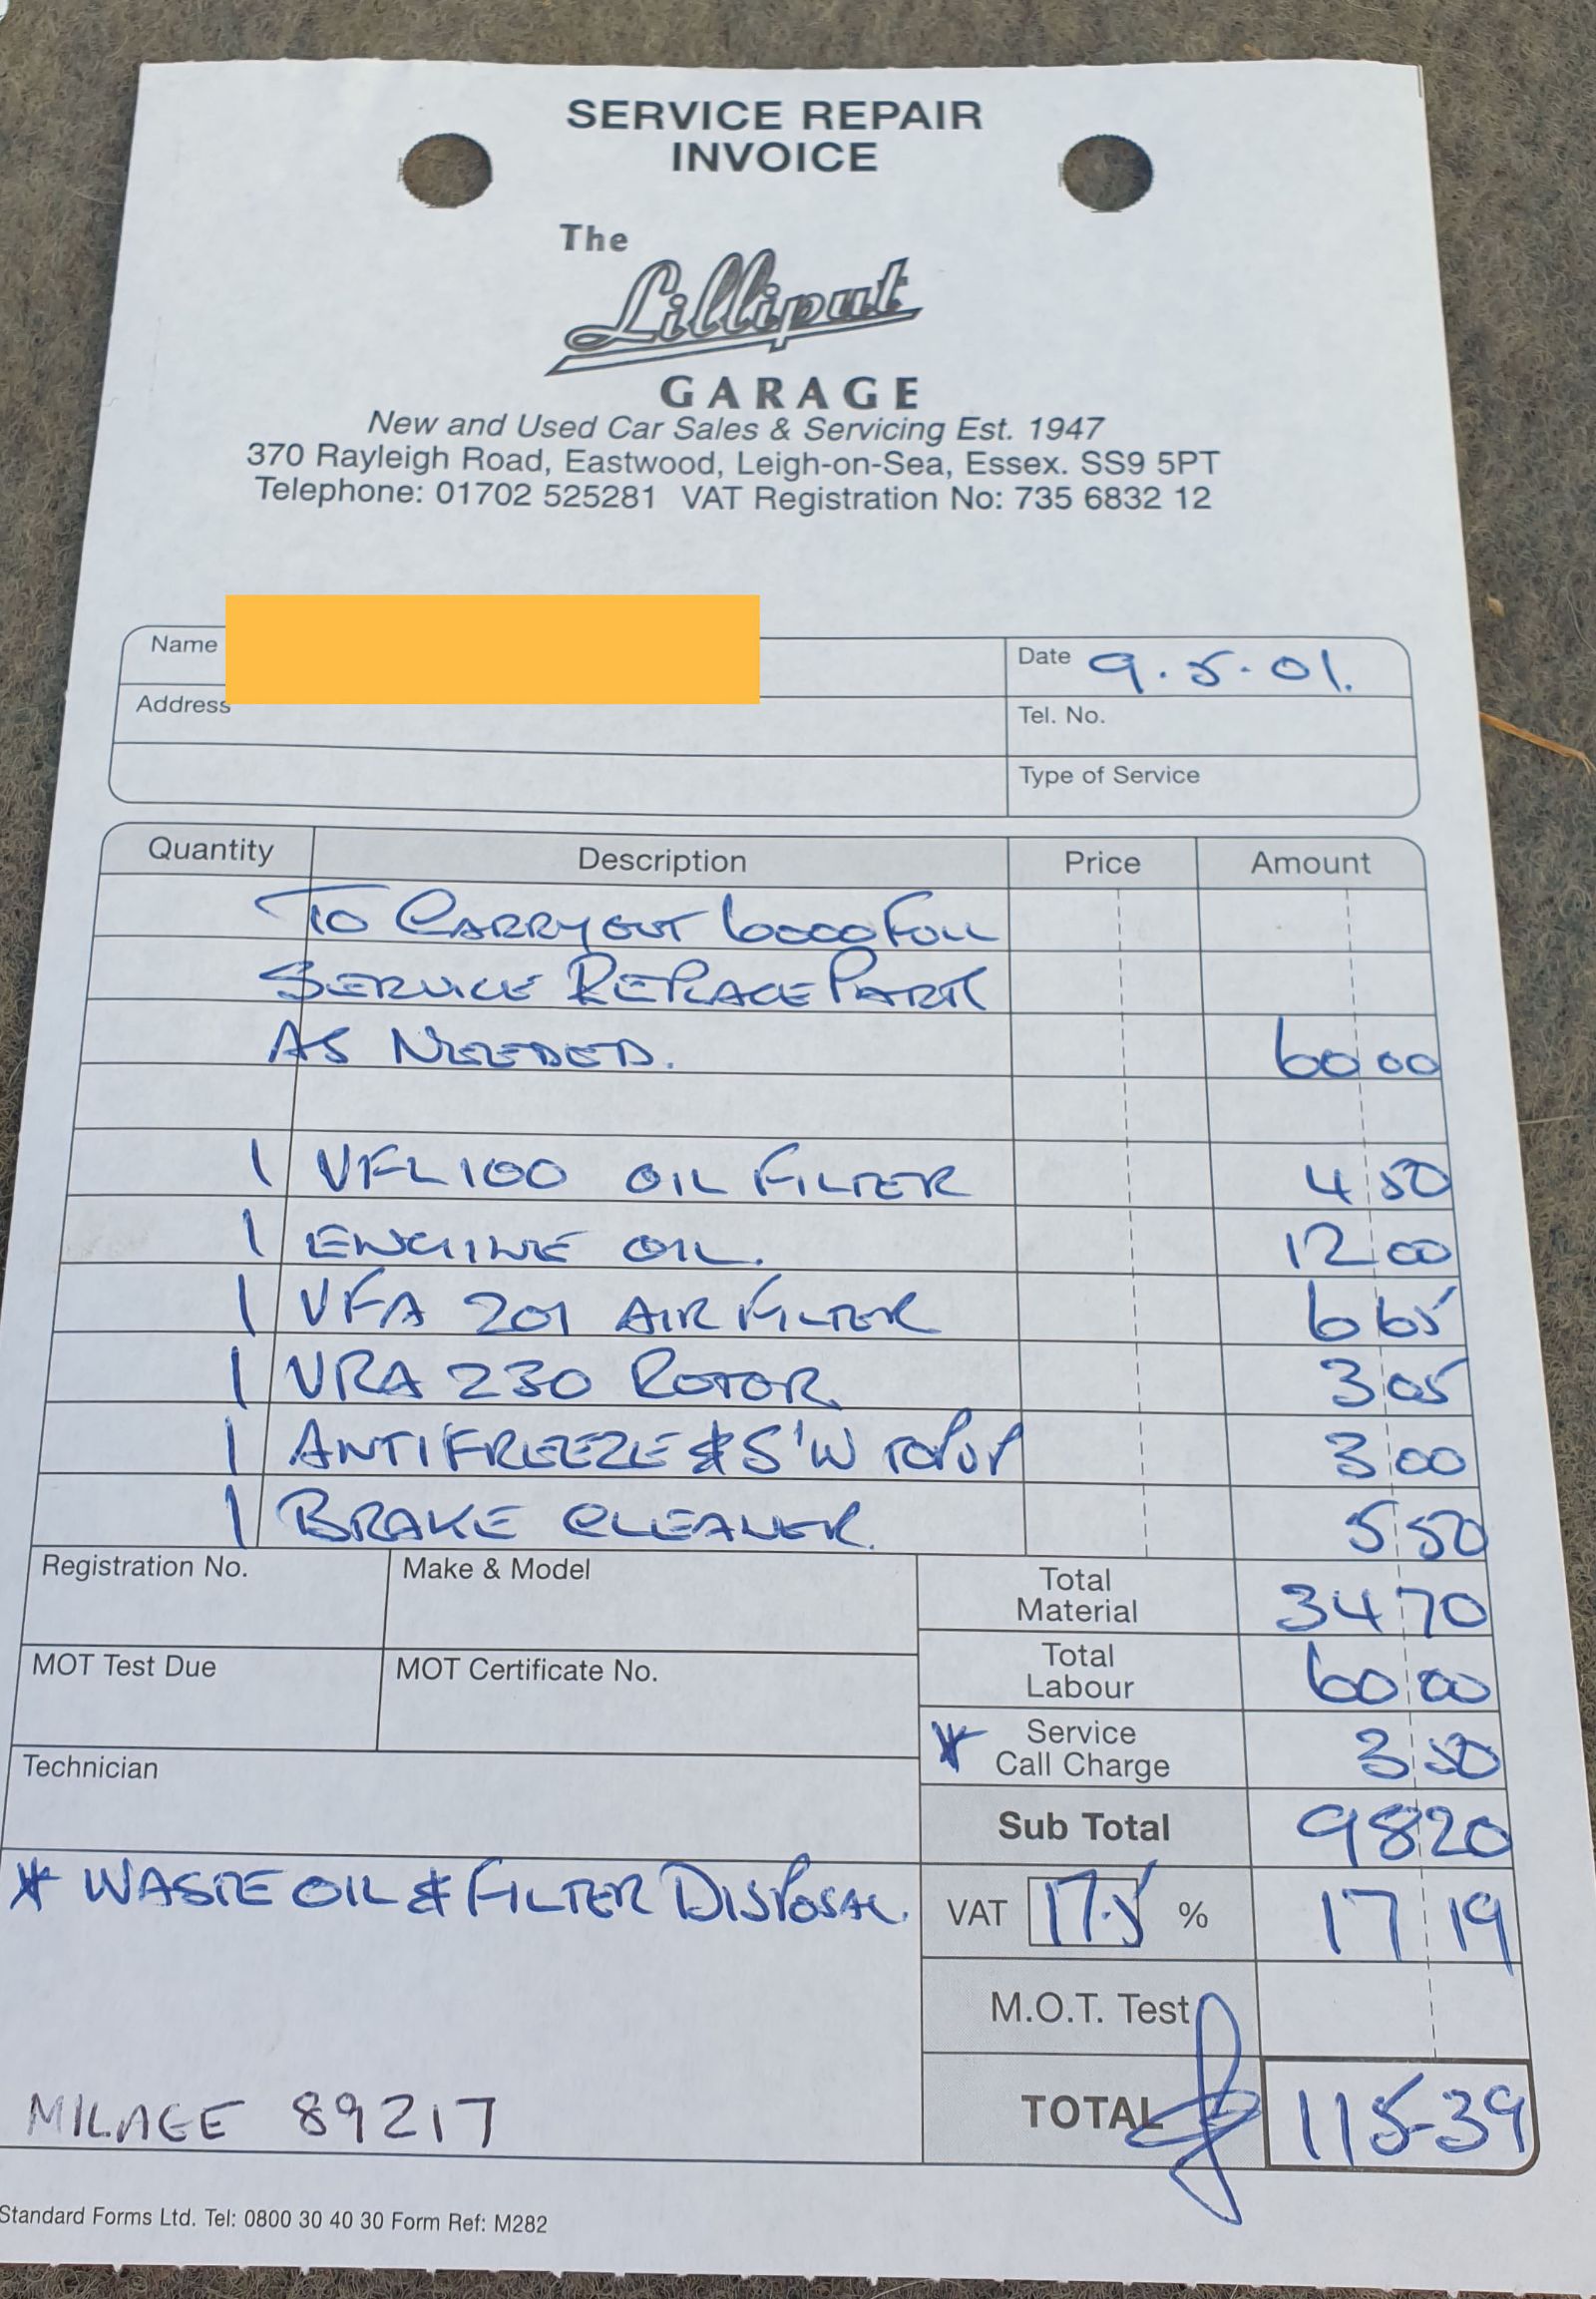 SERVICE REPAIR
INVOICE
The
Lilliput
GARAGE
New and Used Car Sales & Servicing Est. 1947
370 Rayleigh Road, Eastwood, Leigh-on-Sea, Essex. SS9 5PT
Telephone: 01702 525281 VAT Registration No: 735 6832 12
Name
Date 9.5.01.
Address
Tel. No.
Type of Service
Quantity Description Price Amount
TO CARRY OUT 6000 FULL
SERVICE REPLACE PART
AS NEEDED. 60 00
1 VFL100 OIL FILTER 4 50
1 ENGINE OIL. 12 00
1 VFA 201 AIR FILTER 6 65
1 VRA 230 ROTOR 3 05
1 ANTIFREEZE & S'W TOPUP 3 00
1 BRAKE CLEANER. 5 50
Registration No. Make & Model Total Material 34 70
MOT Test Due MOT Certificate No. Total Labour 60 00
Technician * Service Call Charge 3 50
Sub Total 98 20
* WASTE OIL & FILTER DISPOSAL. VAT 17.5 % 17 19
M.O.T. Test
MILAGE 89217 TOTAL 115-39
Standard Forms Ltd. Tel: 0800 30 40 30 Form Ref: M282